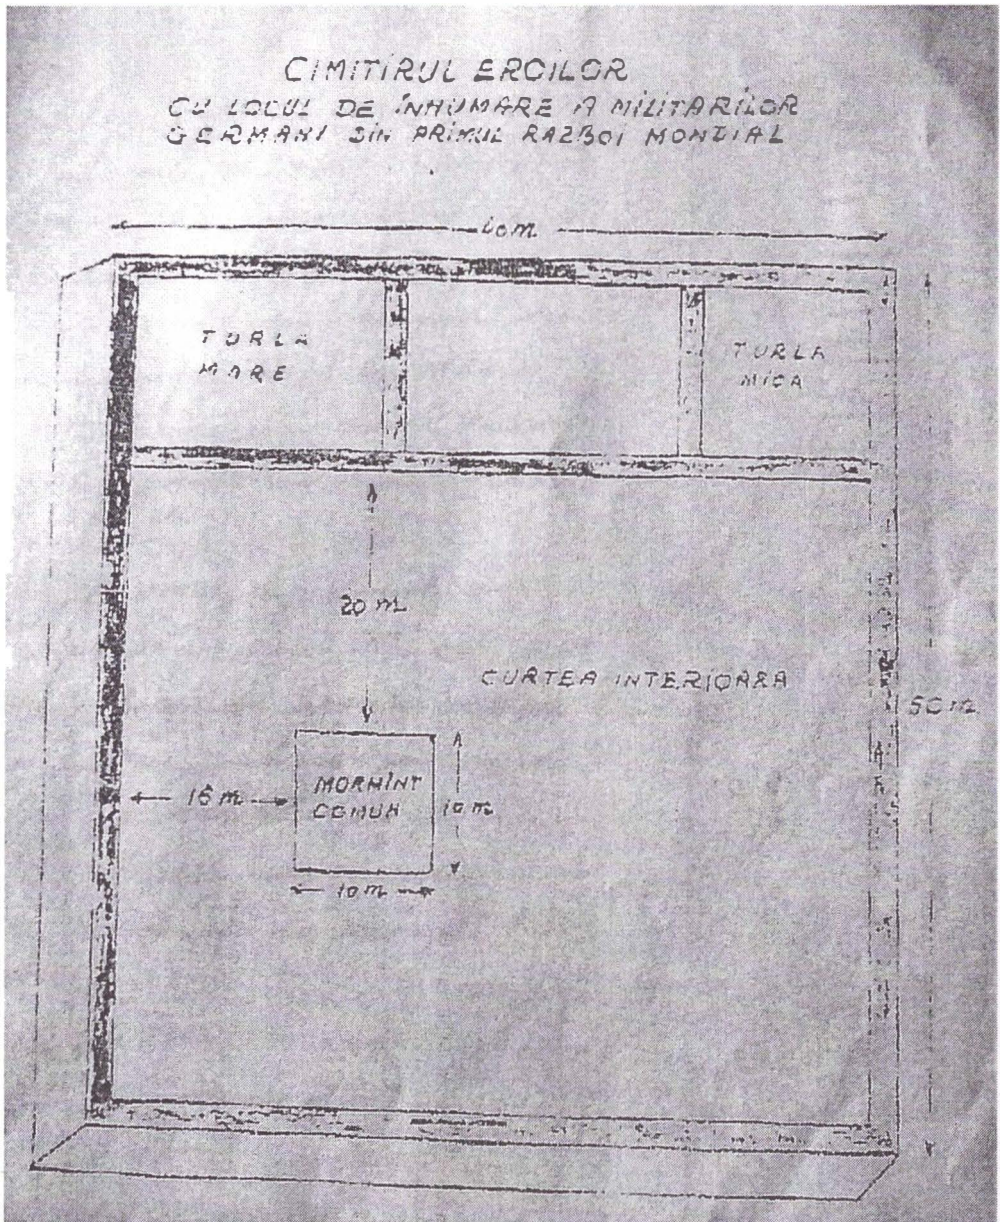 CIMITIRUL EROILOR
CU LOCUL DE ÎNHUMARE A MILITARILOR
GERMANI DIN PRIMUL RAZBOI MONDIAL
TURLA
MARE
TURLA
MICA
20 m
CURTEA INTERIOARA
50 m
MORMÎNT
COMUN
10 m
10 m